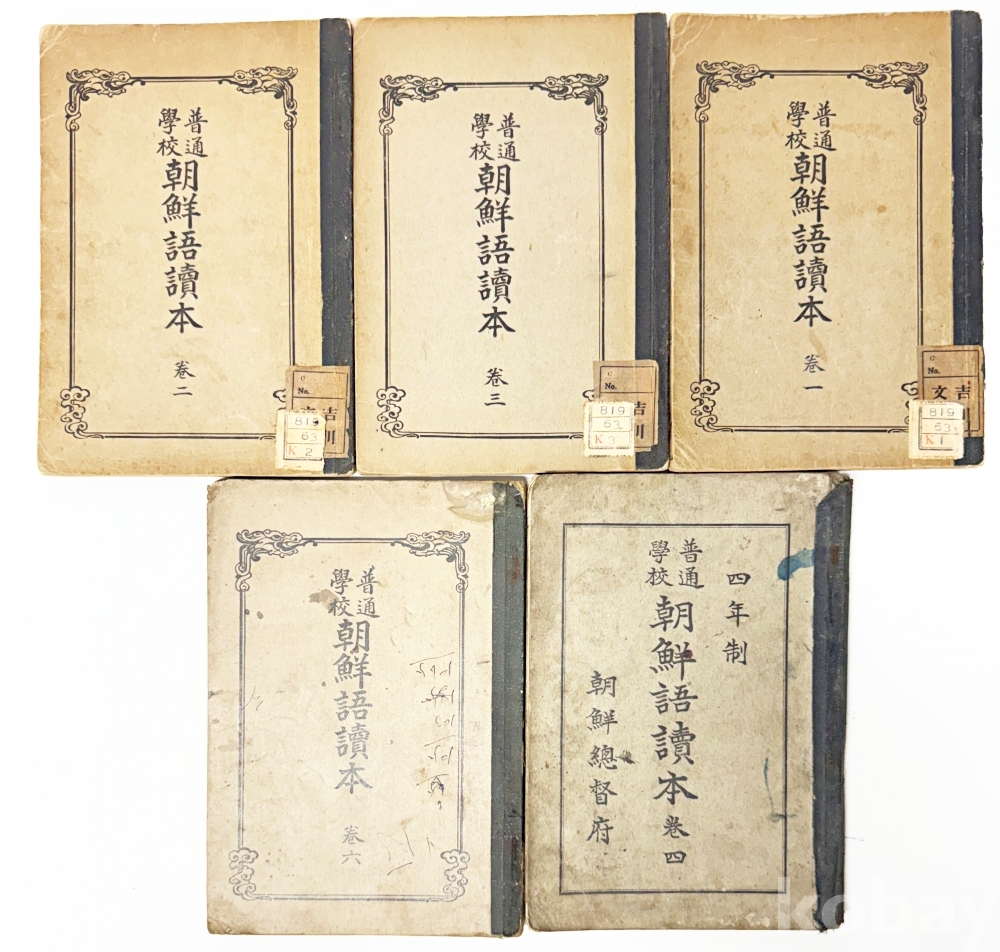 普通
學校
朝鮮語讀本
卷二
No.
819
63
K 2
普通
學校
朝鮮語讀本
卷三
No.
吉
訓
819
63
K 3
普通
學校
朝鮮語讀本
卷一
No.
吉
文
819
63
K 1
普通
學校
朝鮮語讀本
卷六
四年制
普通
學校
朝鮮語讀本 卷四
朝鮮總督府
kobay